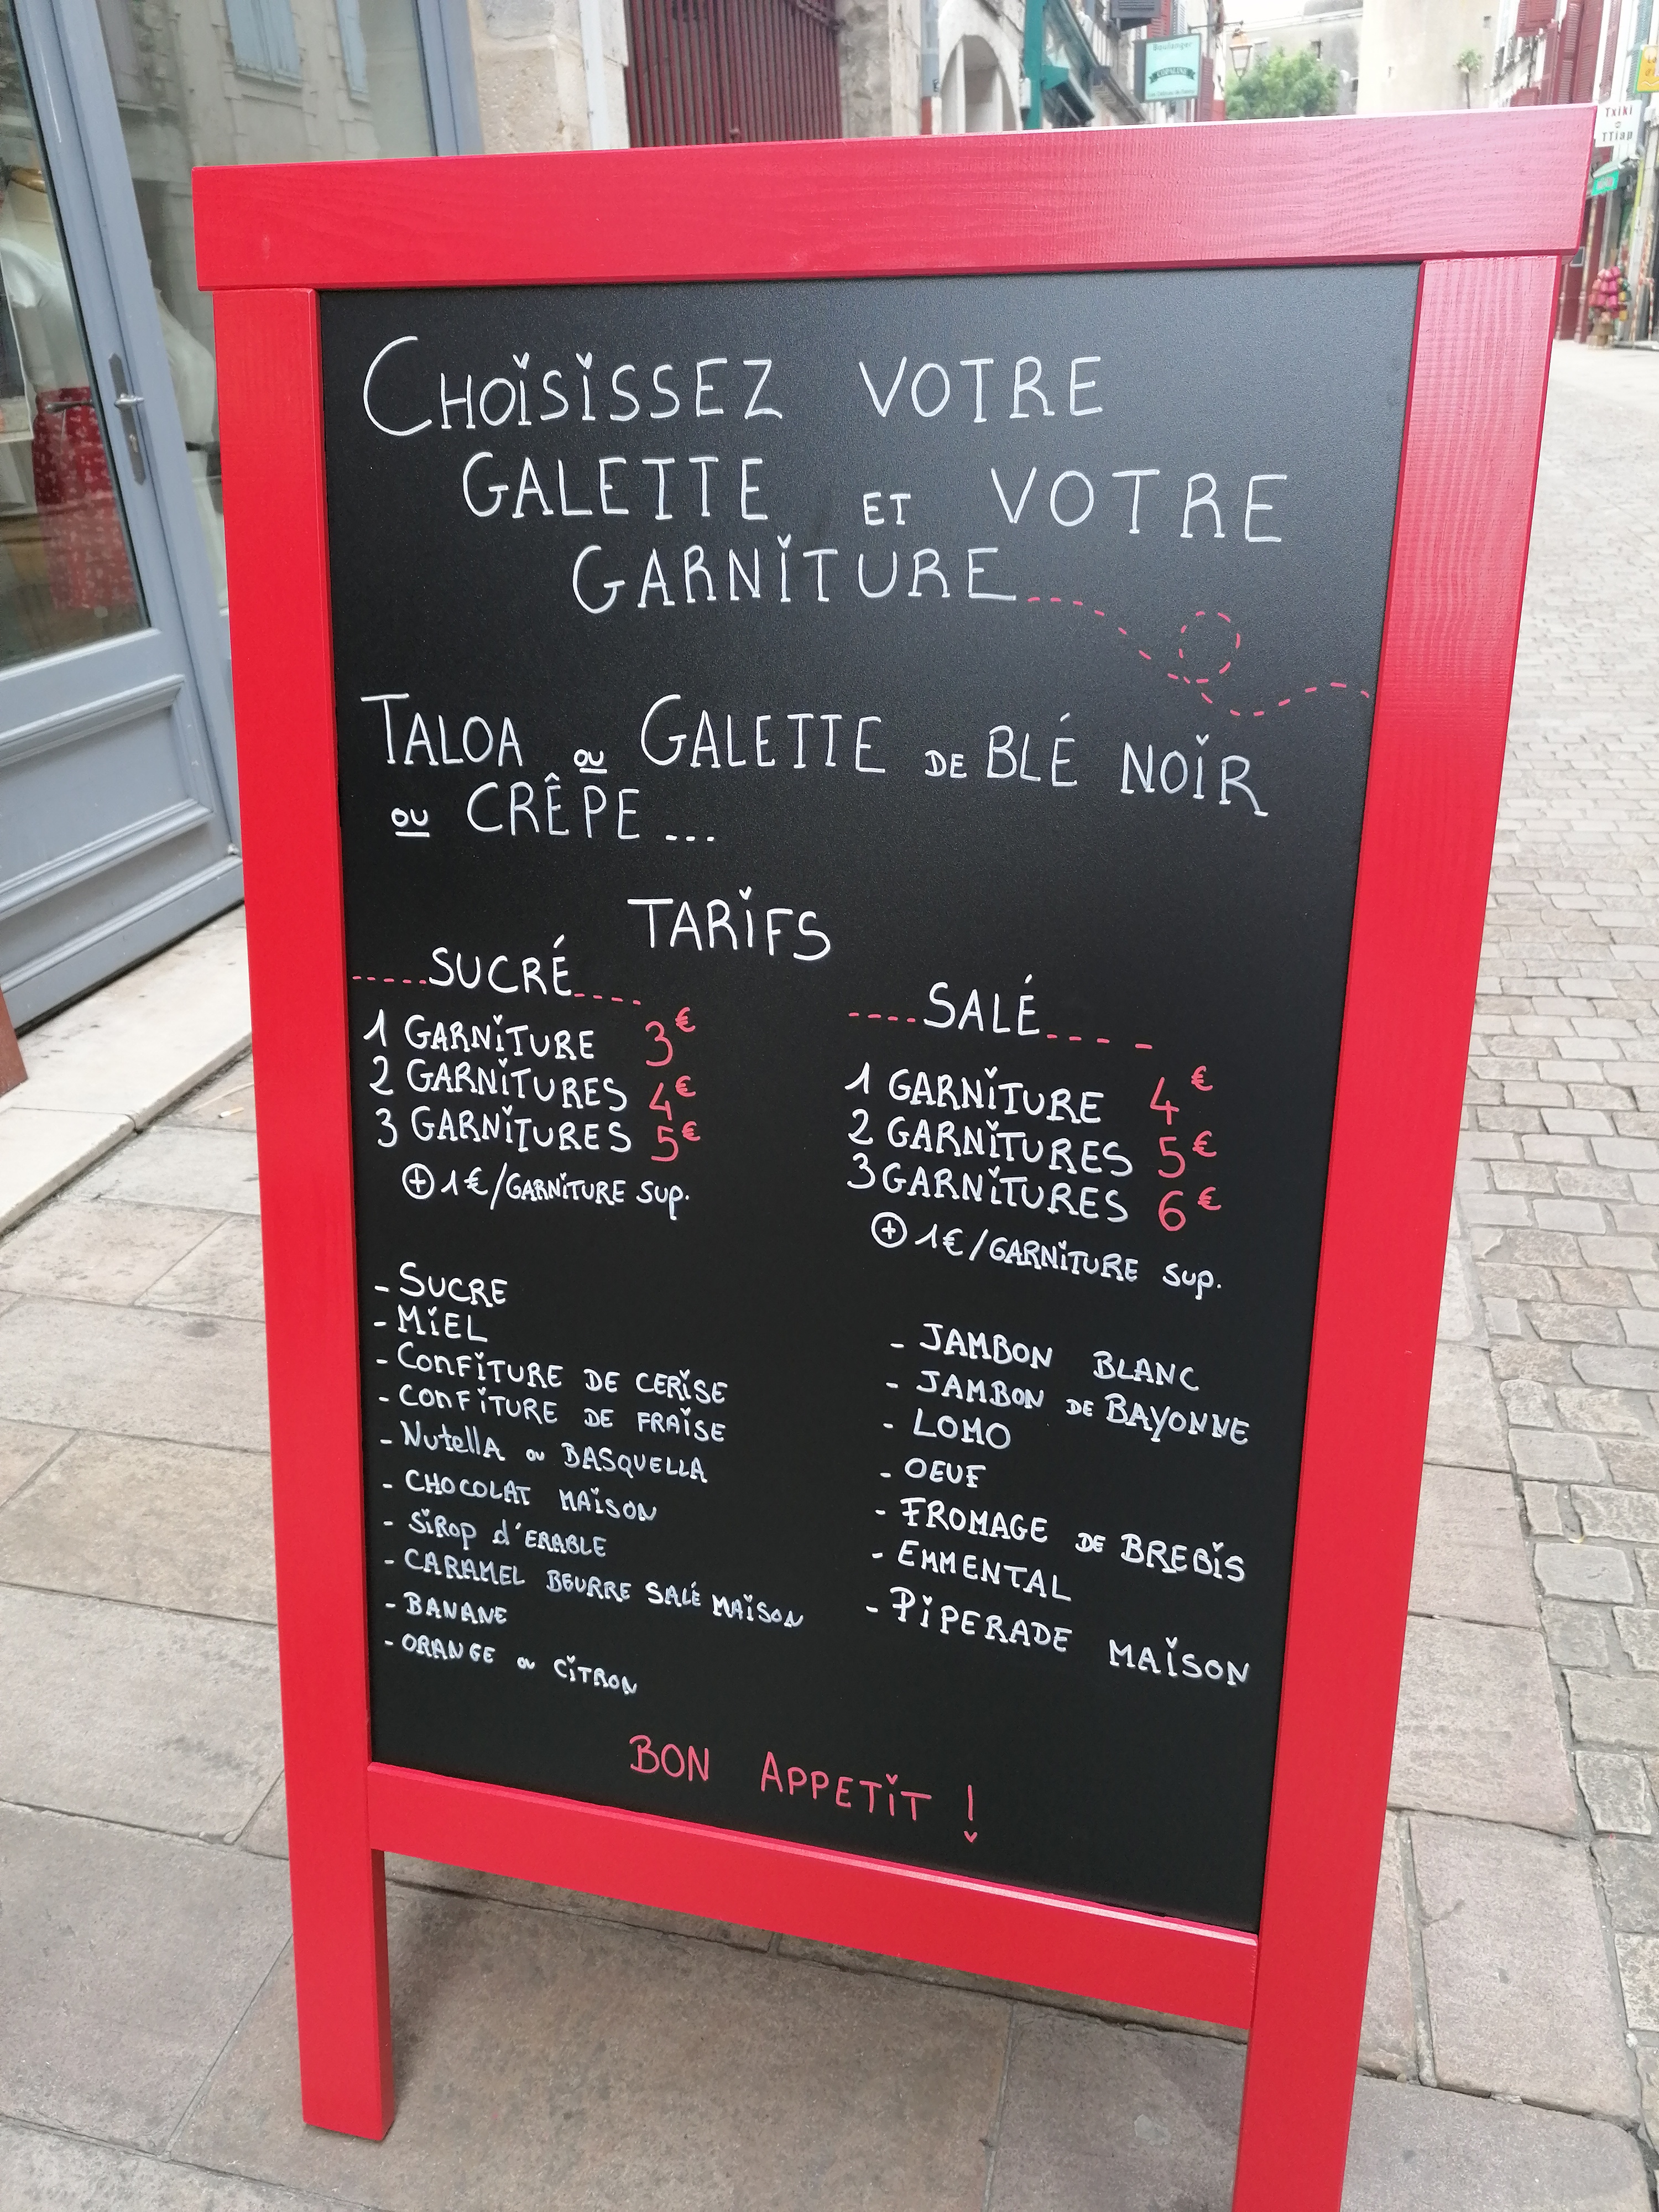 Boulanger
Txiki
TTiap
CHOISISSEZ VOTRE
GALETTE ET VOTRE
GARNITURE
TALOA OU GALETTE DE BLÉ NOIR
OU CRÊPE...
TARIFS
SUCRÉ
1 GARNITURE 3€
2 GARNITURES 4€
3 GARNITURES 5€
+ 1€/GARNITURE SUP.
- SUCRE
- MIEL
- CONFITURE DE CERISE
- CONFITURE DE FRAISE
- NUTELLA OU BASQUELLA
- CHOCOLAT MAISON
- SIROP d'ERABLE
- CARAMEL BEURRE SALÉ MAISON
- BANANE
- ORANGE OU CITRON
SALÉ
1 GARNITURE 4€
2 GARNITURES 5€
3 GARNITURES 6€
+ 1€/GARNITURE SUP.
- JAMBON BLANC
- JAMBON DE BAYONNE
- LOMO
- OEUF
- FROMAGE DE BREBIS
- EMMENTAL
- PIPERADE MAISON
BON APPETIT !